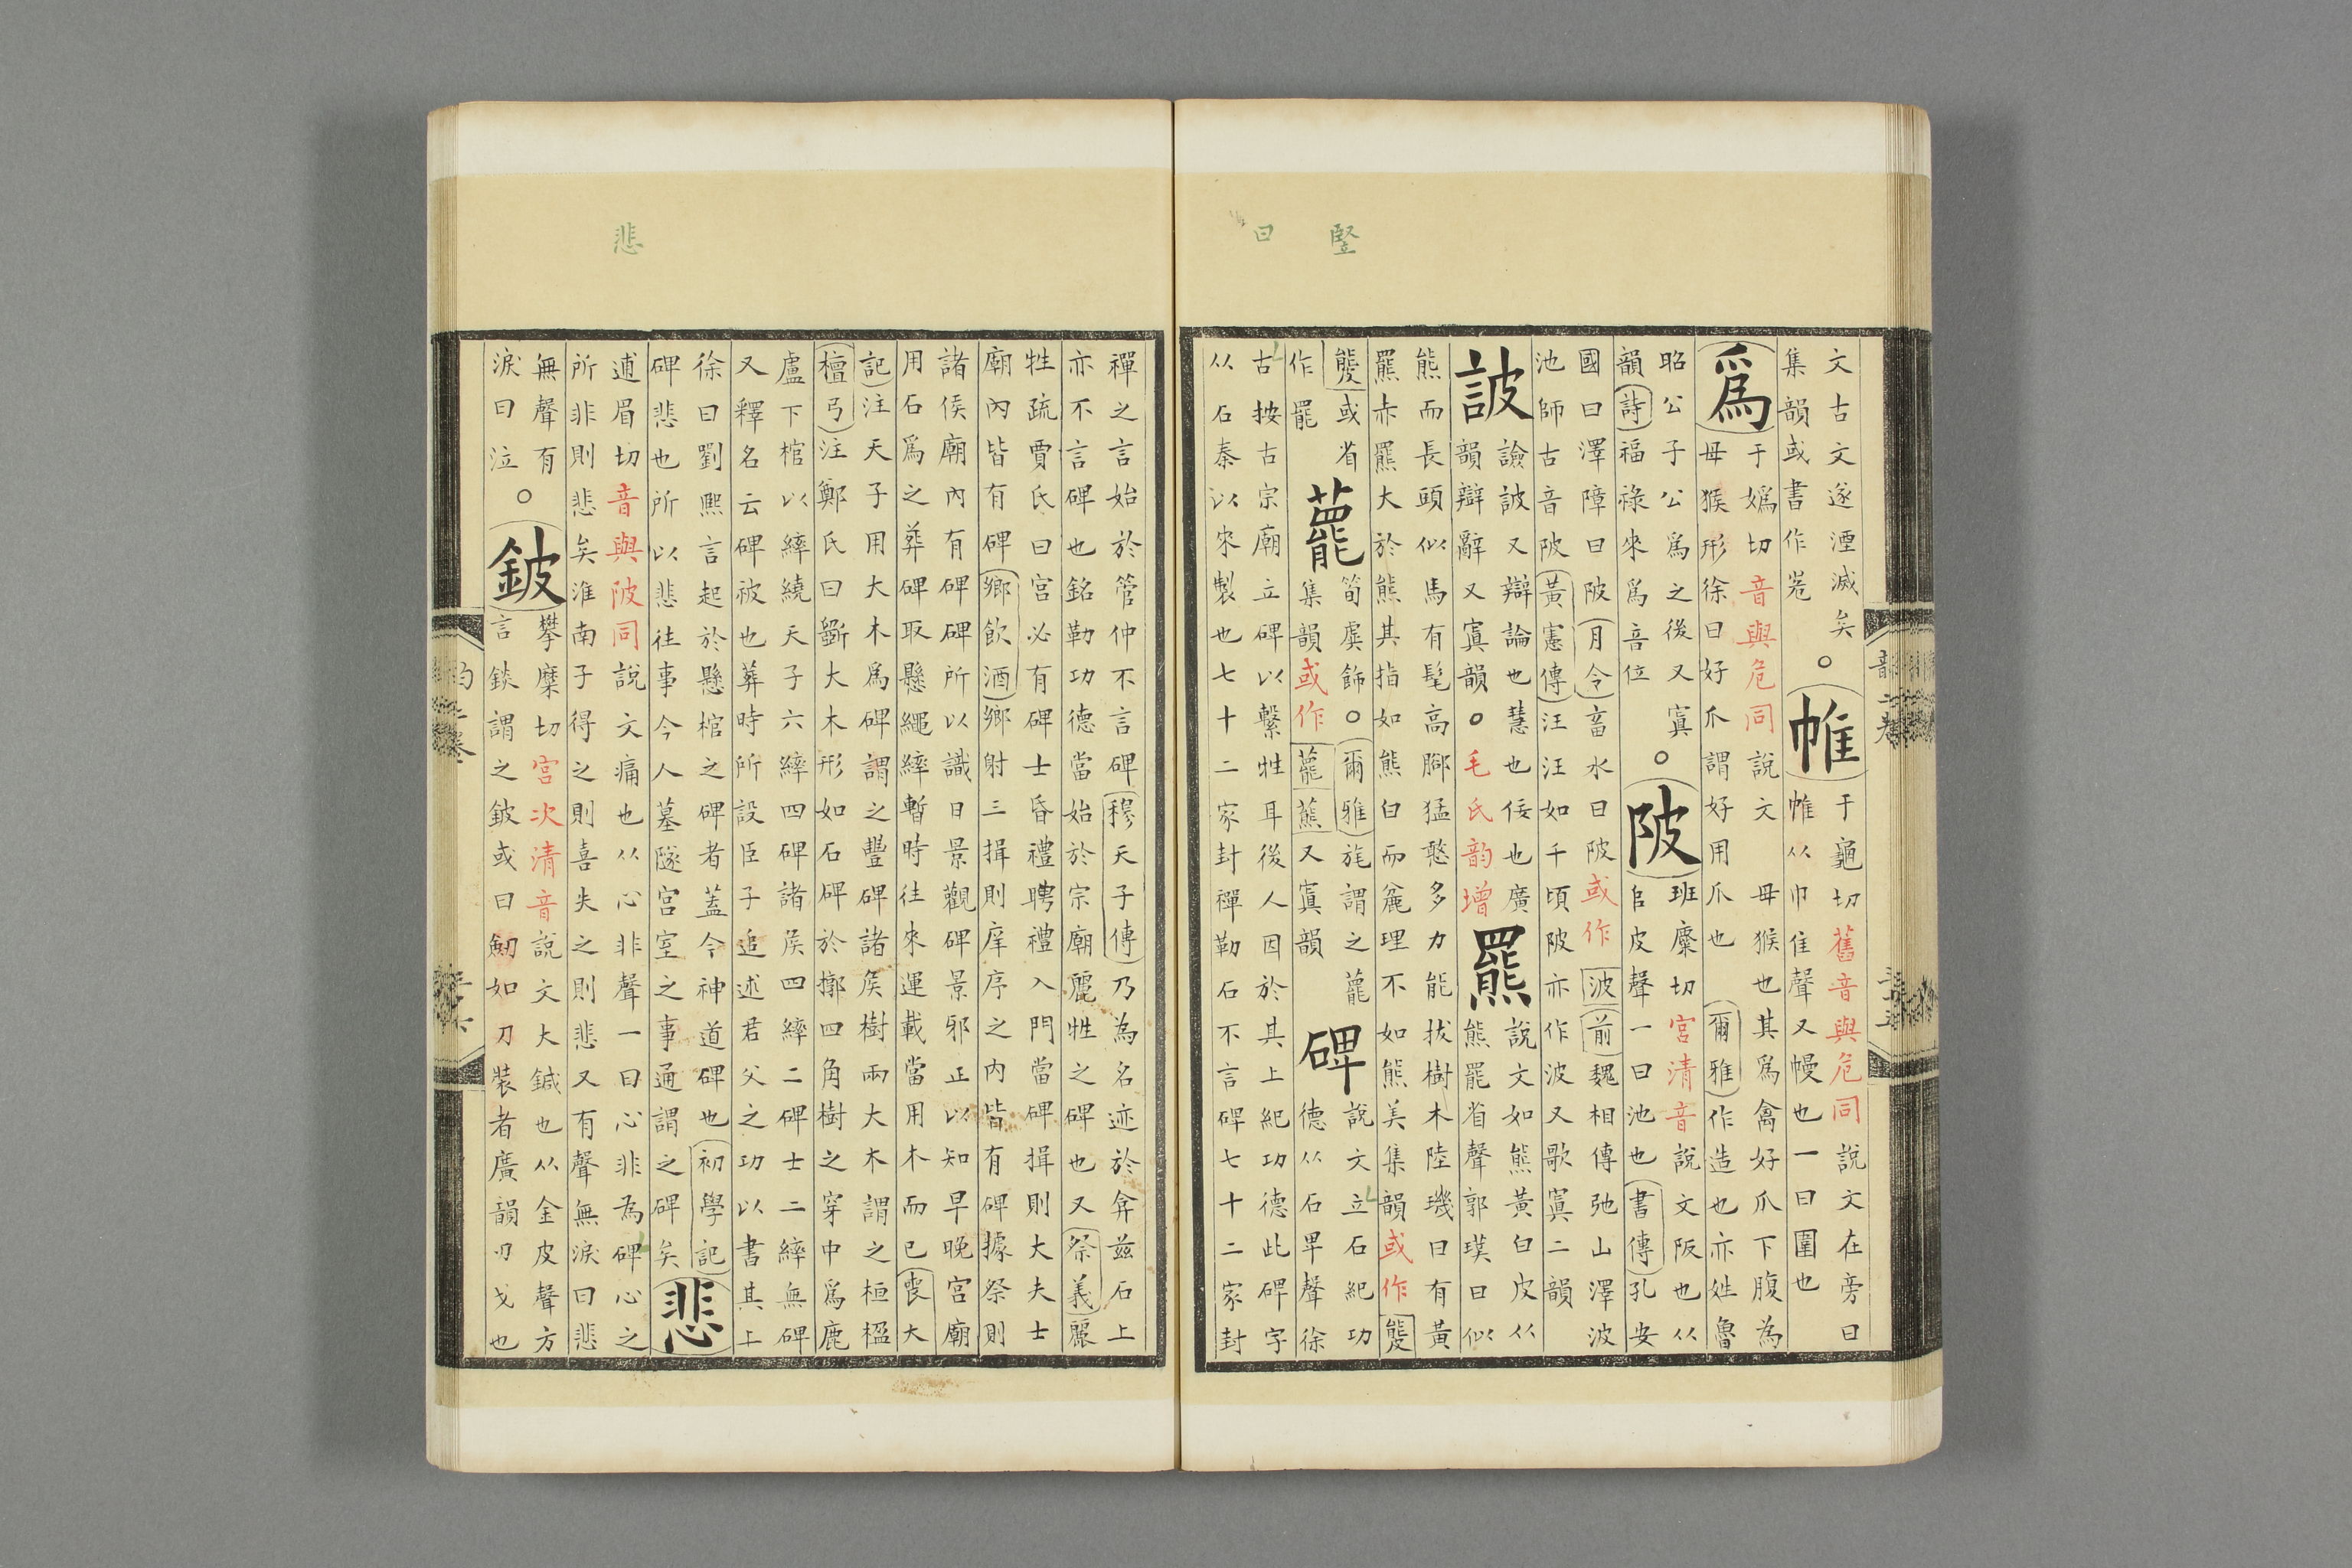 豎
曰
文古文遂湮滅矣○帷于龜切舊音與危同說文在旁曰
集韻或書作𢂷帷从巾隹聲又幔也一曰圍也
爲于嬀切音與危同說文母猴也其爲禽好爪下腹為
母猴形徐曰好爪謂好用爪也爾雅作造也亦姓魯
昭公子公爲之後又寘○陂班糜切宮清音說文阪也从
韻詩福祿來爲音位𨸏皮聲一曰池也書傳孔安
國曰澤障曰陂月令畜水曰陂或作波前魏相傳弛山澤波
池師古音陂黃憲傳汪汪如千頃陂亦作波又歌寘二韻
詖譣詖又辯論也慧也佞也廣
韻辯辭又寘韻○毛氏韵增羆說文如熊黃白皮从
熊罷省聲郭璞曰似
熊而長頭似馬有髦高腳猛憨多力能拔樹木陸璣曰有黃
羆赤羆大於熊其指如熊白而麄理不如熊美集韻或作䰟
䰟或省
作罷䕗筍虡飾○爾雅旄謂之䕗
集韻或作䕗藣又寘韻碑說文立石紀功
德从石卑聲徐
古按古宗廟立碑以繫牲耳後人因於其上紀功德此碑字
从石秦以來製也七十二家封禪勒石不言碑七十二家封
悲
禪之言始於管仲不言碑穆天子傳乃為名迹於弇茲石上
亦不言碑也銘勒功德當始於宗廟麗牲之碑也又祭義麗
牲疏賈氏曰宮必有碑士昏禮聘禮入門當碑揖則大夫士
廟內皆有碑鄉飲酒鄉射三揖則庠序之內皆有碑據祭則
諸侯廟內有碑碑所以識日景觀碑景邪正以知早晚宮廟
用石爲之葬碑取懸繩繂暫時往來運載當用木而已喪大
記注天子用大木爲碑謂之豐碑諸侯樹兩大木謂之桓楹
檀弓注鄭氏曰斲大木形如石碑於槨四角樹之穿中爲鹿
盧下棺以繂繞天子六繂四碑諸侯四繂二碑士二繂無碑
又釋名云碑被也葬時所設臣子追述君父之功以書其上
徐曰劉熙言起於懸棺之碑者蓋今神道碑也初學記
碑悲也所以悲往事今人墓隧宮室之事通謂之碑矣悲
逋眉切音與陂同說文痛也从心非聲一曰心非為碑心之
所非則悲矣淮南子得之則喜失之則悲又有聲無淚曰悲
無聲有
淚曰泣○鈹攀糜切宮次清音說文大鍼也从金皮聲方
言錟謂之鈹或曰劒如刀裝者廣韻刀戈也